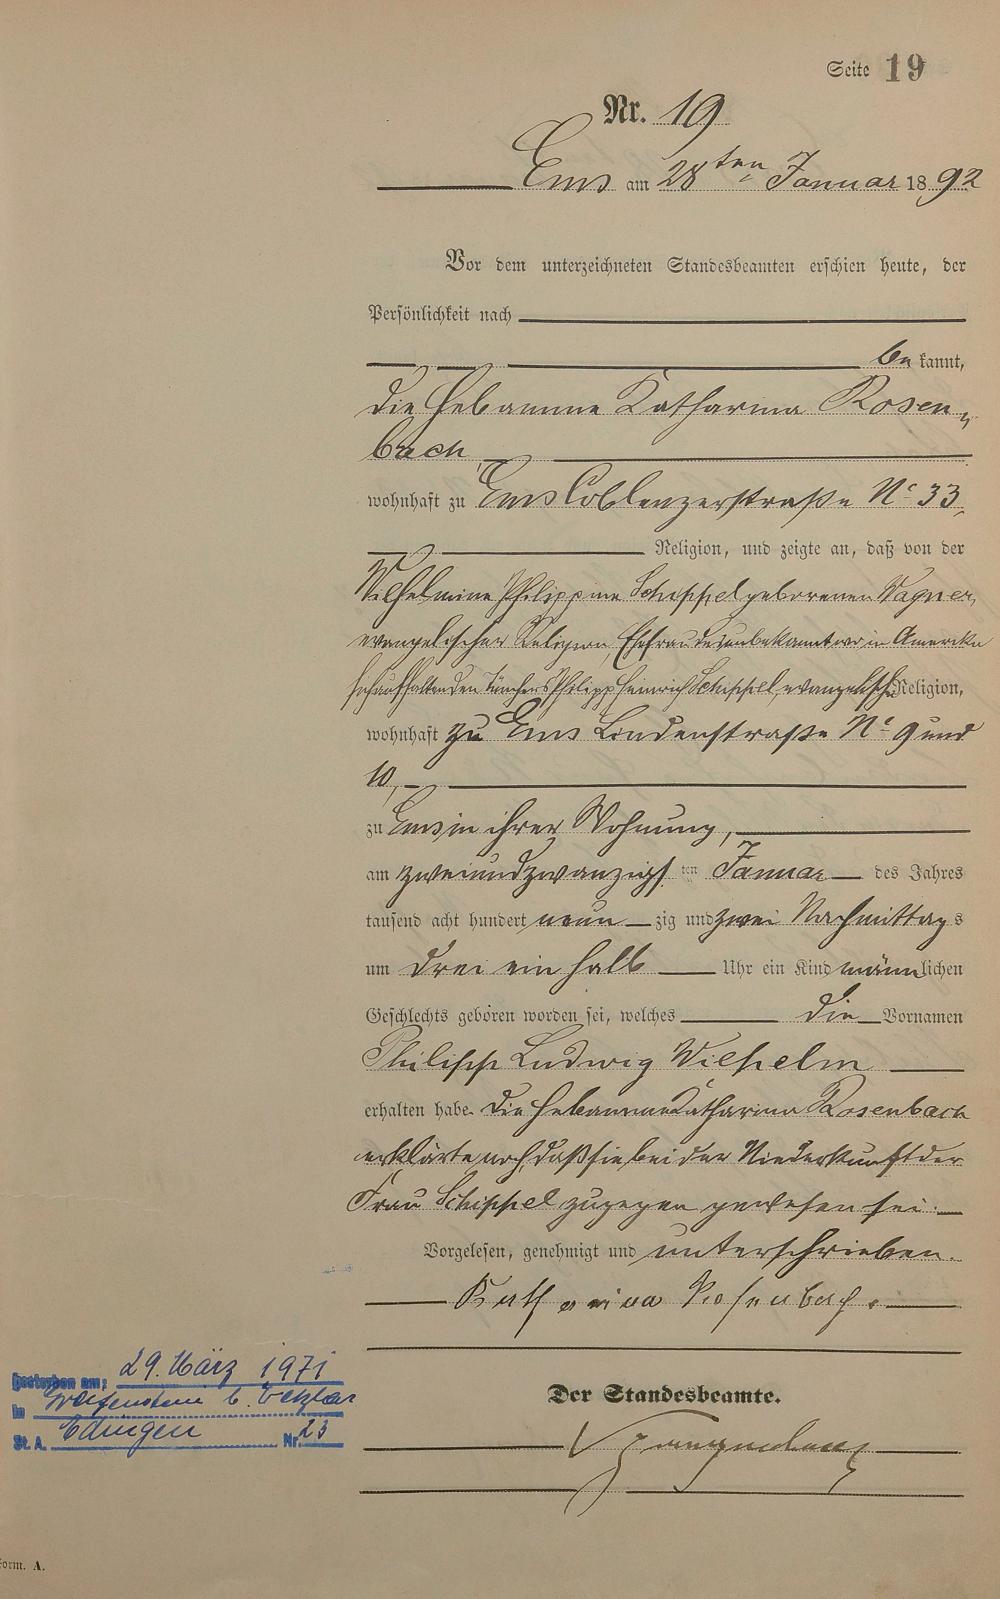 Seite 19
Nr. 19
Ems am 28ten Januar 1892
Vor dem unterzeichneten Standesbeamten erschien heute, der
Persönlichkeit nach
be kannt,
die Hebamme Katharina Rosen-
bach
wohnhaft zu Ems Coblenzerstraße No 33,
Religion, und zeigte an, daß von der
Wilhelmine Philippine Schippel geborenen Wagner,
evangelischer Religion, Ehefrau des unbekannt wo in Amerika
sich aufhaltenden Tünchers Philipp Heinrich Schippel, evangelischer Religion,
wohnhaft zu Ems Lindenstraße No 9 und
10,
zu Ems in ihrer Wohnung,
am zweiundzwanzigs ten Januar des Jahres
tausend acht hundert neun zig und zwei Nachmittag s
um drei ein halb Uhr ein Kind männlichen
Geschlechts geboren worden sei, welches die Vornamen
Philipp Ludwig Wilhelm
erhalten habe. Die Hebamme Katharina Rosenbach
erklärte noch, daß sie bei der Niederkunft der
Frau Schippel zugegen gewesen sei.
Vorgelesen, genehmigt und unterschrieben.
Katharina Rosenbach.
Der Standesbeamte.
gestorben am: 29. März 1971
in Greifenstein b. Wetzlar
St. A. Edingen Nr. 23
Form. A.